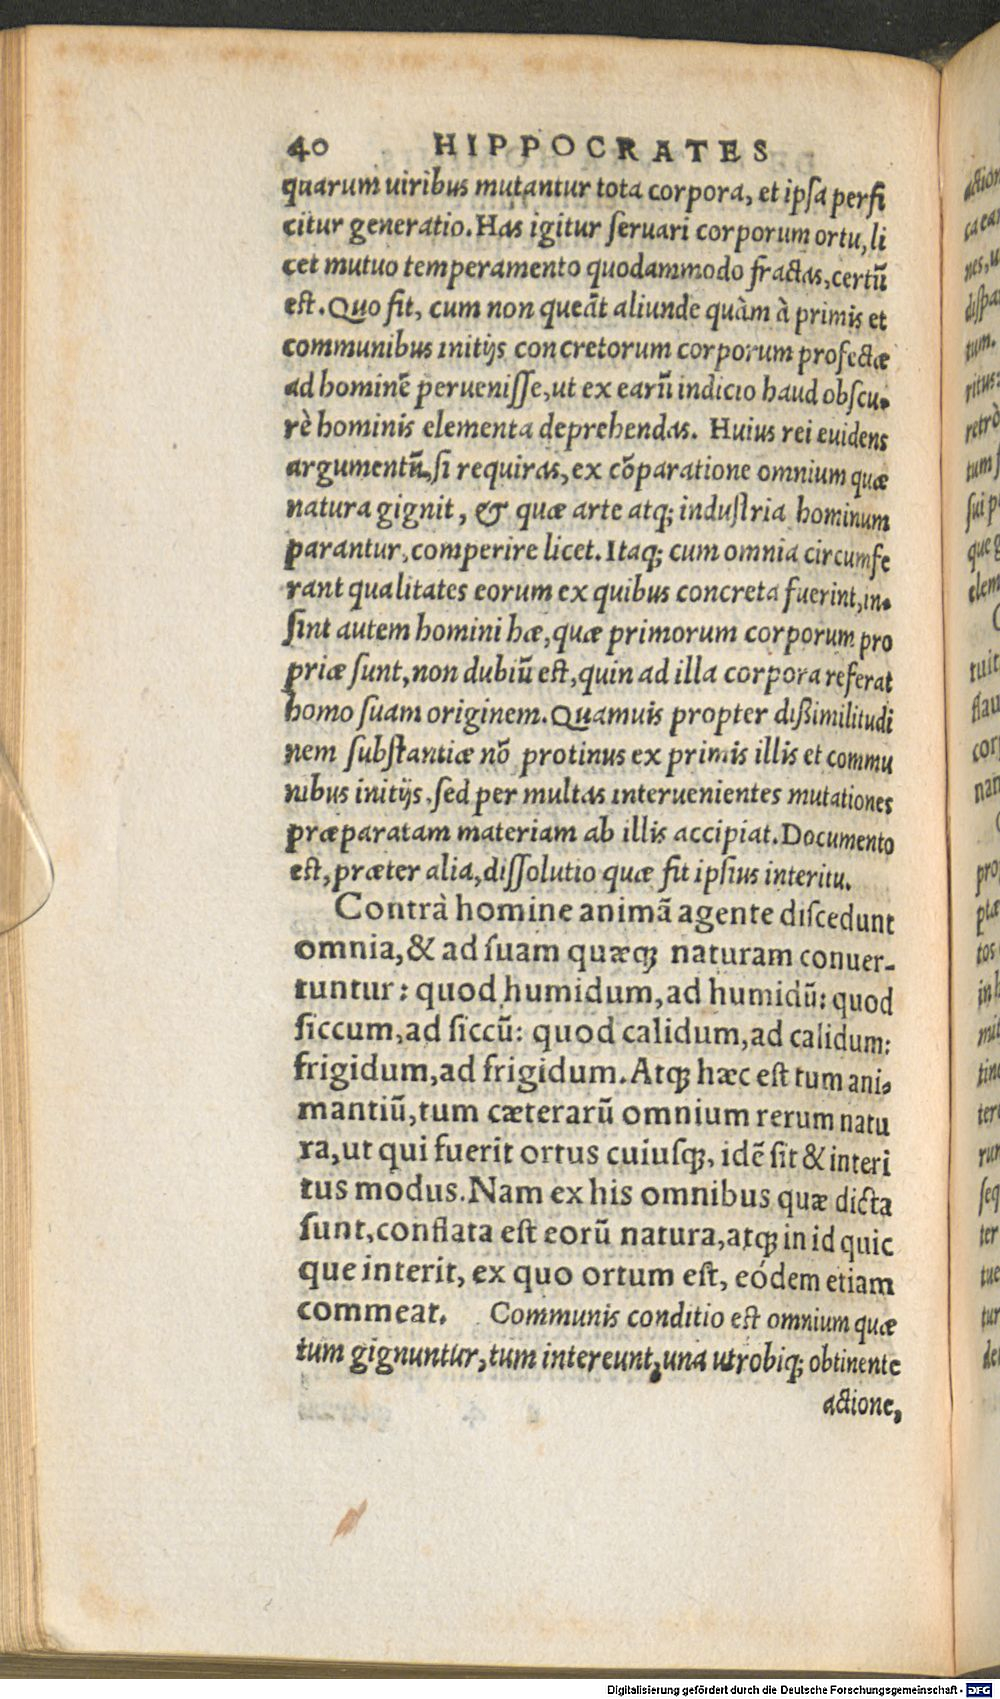 40 HIPPOCRATES
quarum uiribus mutantur tota corpora, et ipsa perfi
citur generatio. Has igitur seruari corporum ortu, li
cet mutuo temperamento quodammodo fractas, certũ
est. Quo fit, cum non queãt aliunde quàm à primis et
communibus initijs concretorum corporum profectæ
ad hominẽ peruenisse, ut ex earũ indicio haud obscu-
rè hominis elementa deprehendas. Huius rei euidens
argumentũ, si requiras, ex cõparatione omnium quæ
natura gignit, & quæ arte atq; industria hominum
parantur, comperire licet. Itaq; cum omnia circumfe
rant qualitates eorum ex quibus concreta fuerint, in-
sint autem homini hæ, quæ primorum corporum pro
priæ sunt, non dubiũ est, quin ad illa corpora referat
homo suam originem. Quamuis propter dißimilitudi
nem substantiæ nõ protinus ex primis illis et commu
nibus initijs, sed per multas interuenientes mutationes
præparatam materiam ab illis accipiat. Documento
est, præter alia, dissolutio quæ fit ipsius interitu.
Contrà homine animã agente discedunt
omnia, & ad suam quæq; naturam conuer-
tuntur: quod humidum, ad humidũ: quod
siccum, ad siccũ: quod calidum, ad calidum:
frigidum, ad frigidum. Atq; hæc est tum ani-
mantiũ, tum cæterarũ omnium rerum natu
ra, ut qui fuerit ortus cuiusq;, idẽ sit & interi
tus modus. Nam ex his omnibus quæ dicta
sunt, conflata est eorũ natura, atq; in id quic
que interit, ex quo ortum est, eódem etiam
commeat. Communis conditio est omnium quæ
tum gignuntur, tum intereunt, una utrobiq; obtinente
actione,
Digitalisierung gefördert durch die Deutsche Forschungsgemeinschaft - DFG